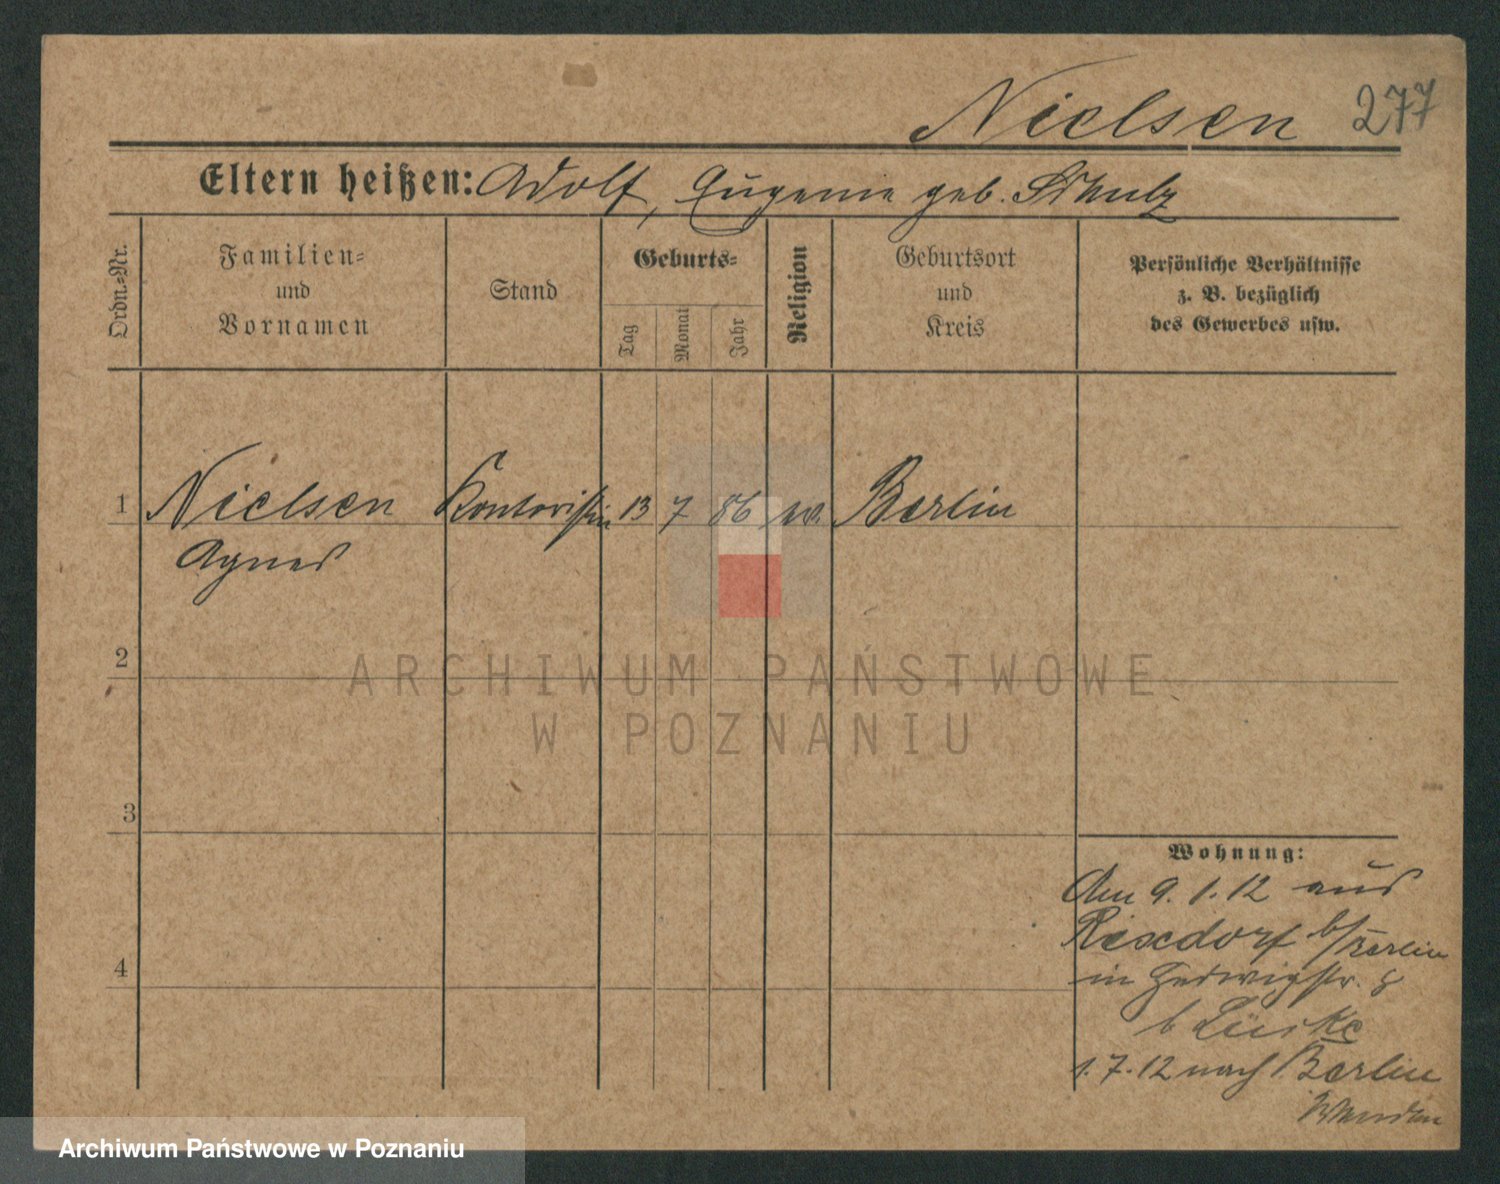 Nielsen 277
Eltern heißen: Adolf, Eugenie geb. Schulz
Ordn.-Nr.
Familien-
und
Vornamen
Stand
Geburts-
Tag
Monat
Jahr
Religion
Geburtsort
und
Kreis
Persönliche Verhältnisse
z. B. bezüglich
des Gewerbes usw.
1 Nielsen Kontoristin 13 7 86 ev. Berlin
Agnes
2
3
4
Wohnung:
Am 9.1.12 aus
Rixdorf b/Berlin
in Hedwigstr. 8
b
1.7.12 nach Berlin
ARCHIWUM PAŃSTWOWE
W POZNANIU
Archiwum Państwowe w Poznaniu